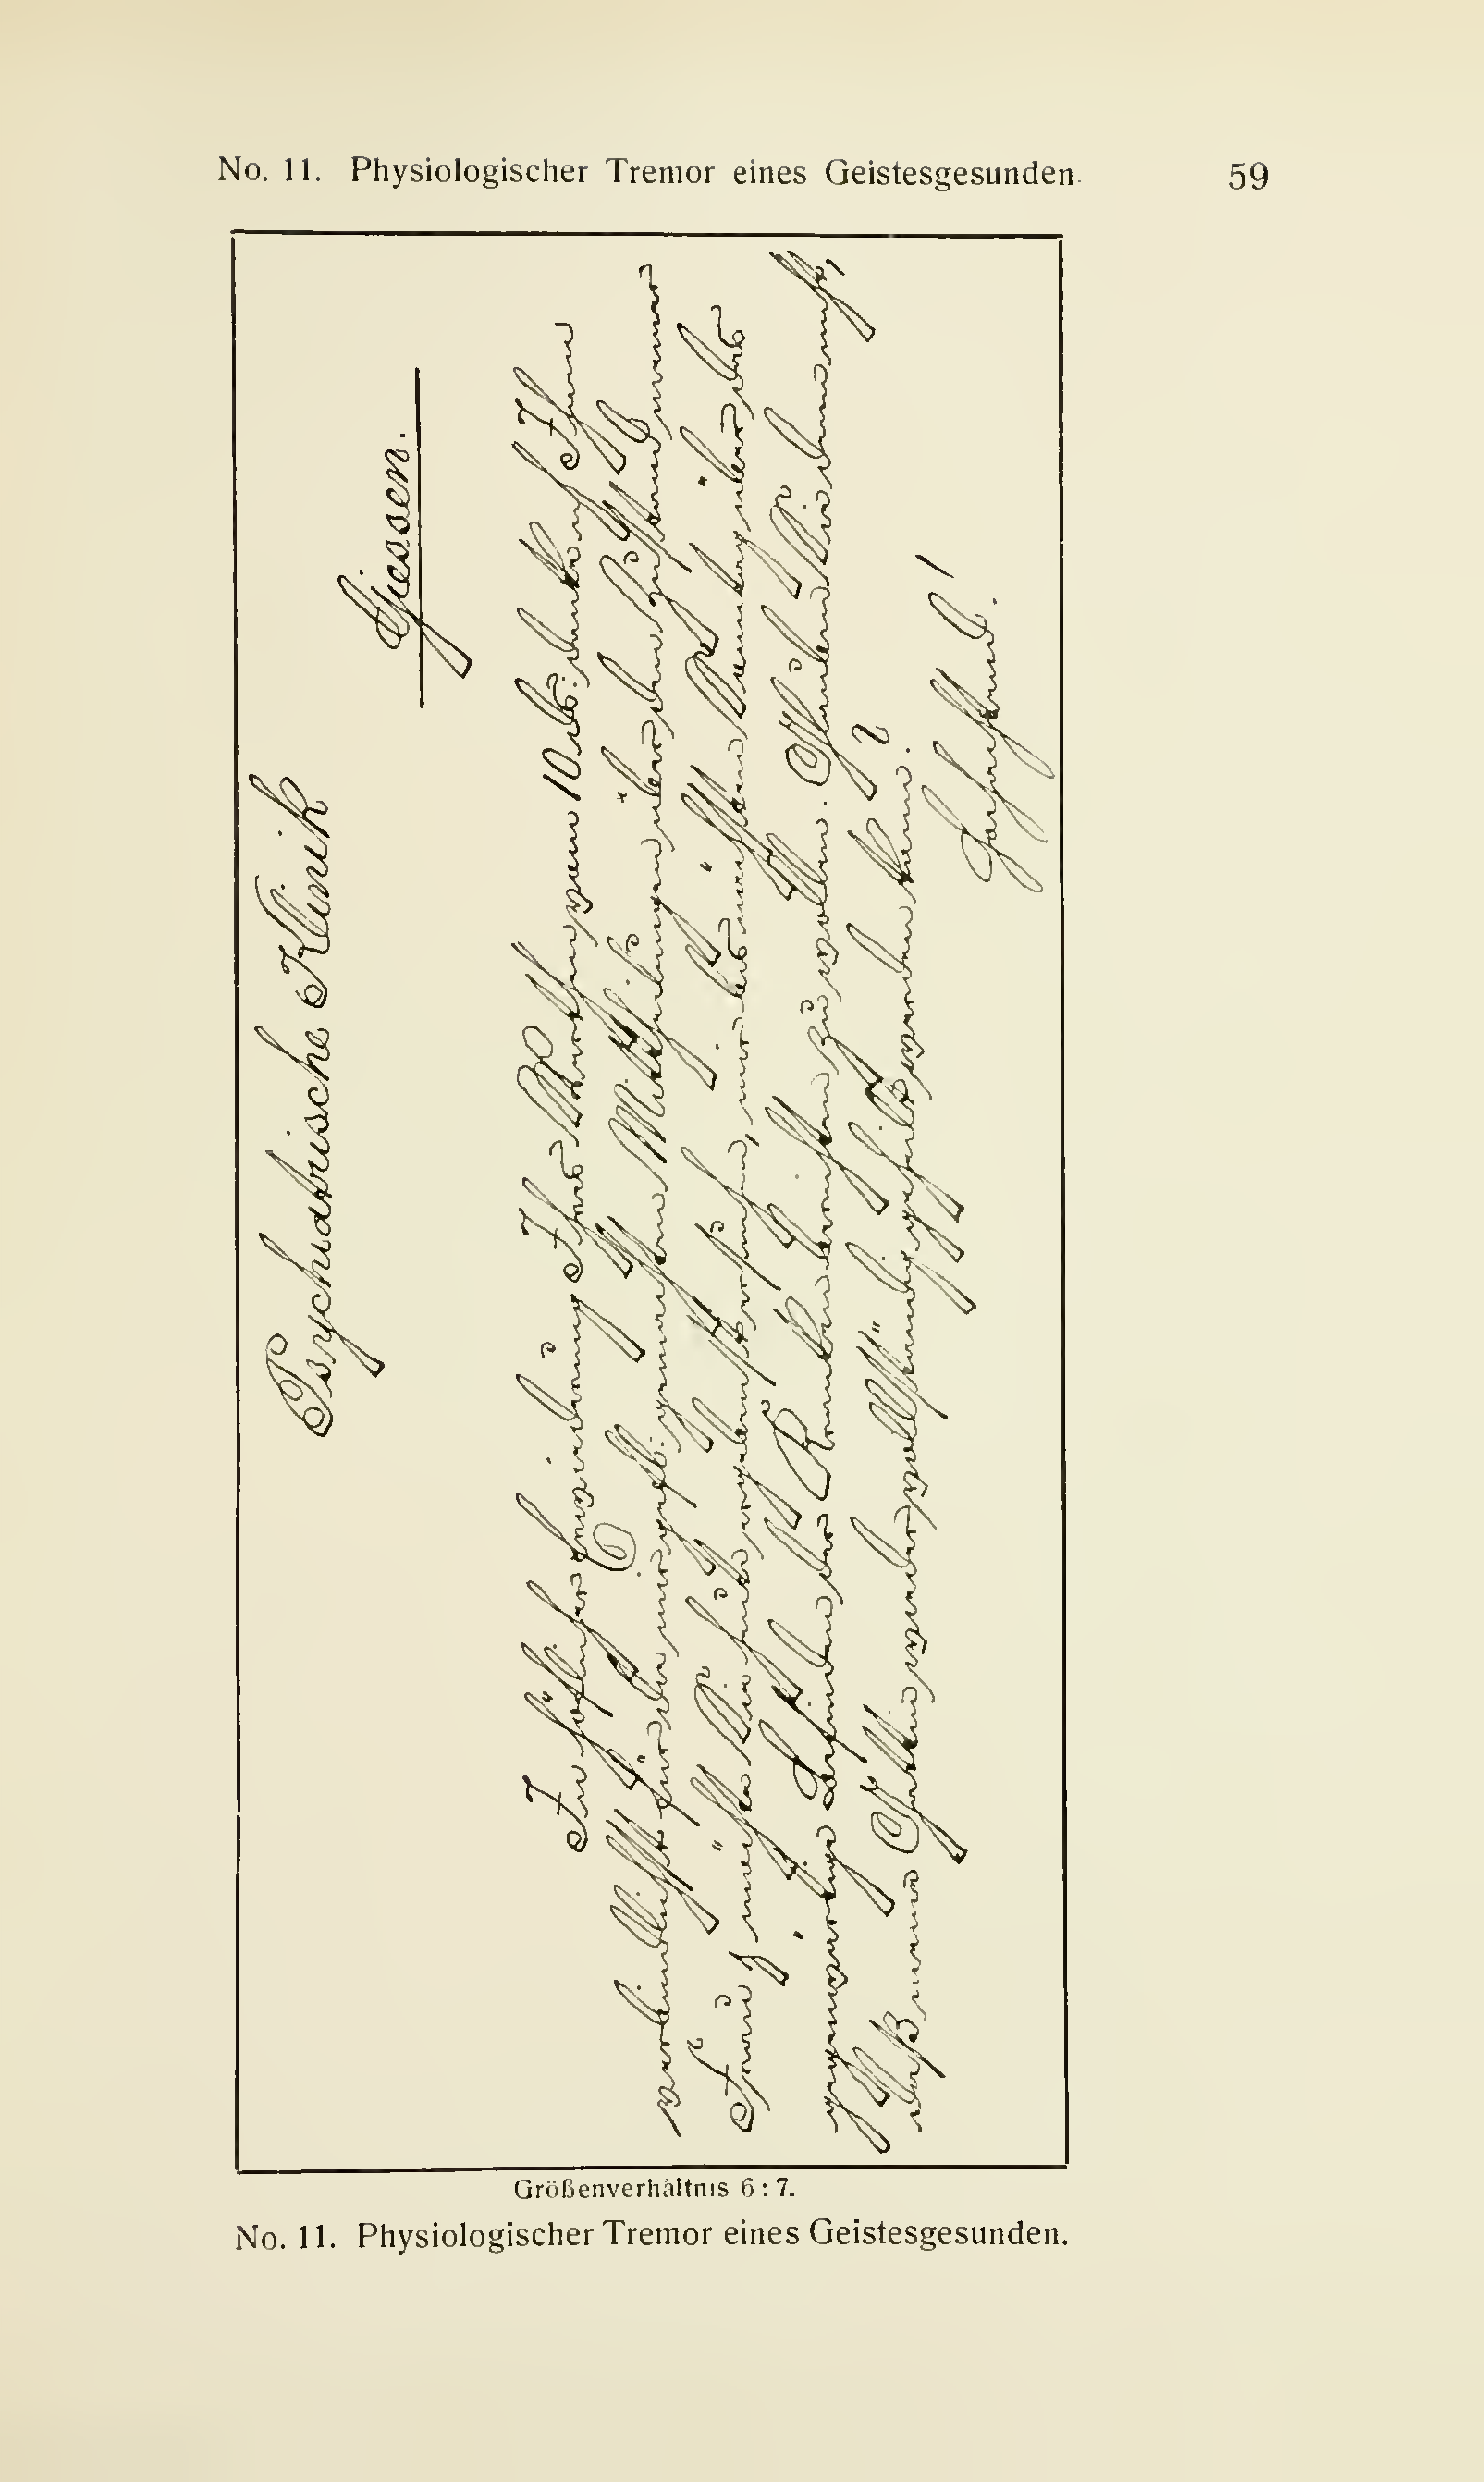 No. 11. Physiologischer Tremor eines Geistesgesunden. 59
Psychiatrische Klinik
Giessen.
In höflicher Erwiderung Ihres Werthen vom 10. ds. danke ich Ihnen
verbindlichst für die mir gefl. gemachten Mittheilungen über den Zustand meiner
Frau, möchte Sie heute ergebenst ersuchen, mir bis nächsten Sonntag über das
gegenwärtige Befinden der Kranken berichten zu wollen. Glauben Sie denn noch,
daß meine Gattin wieder vollständig geheilt werden kann?
Hochachtend!
Größenverhältnis 6 : 7.
No. 11. Physiologischer Tremor eines Geistesgesunden.